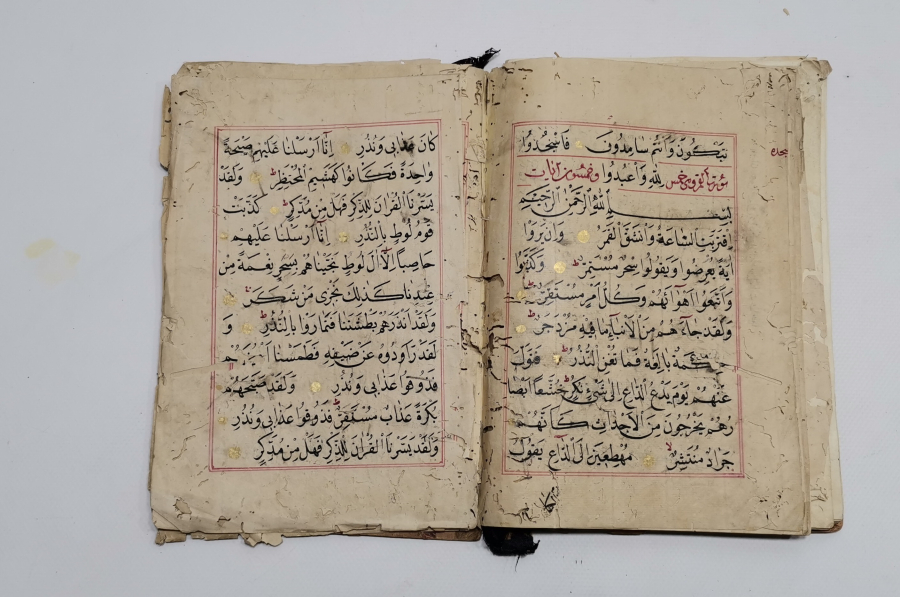 تَبْكُونَ وَأَنْتُمْ سَامِدُونَ فَاسْجُدُوا
سجده
لِلَّهِ وَاعْبُدُوا
سورة القمر وهي خمس وخمسون آيات
بِسْمِ اللَّهِ الرَّحْمَنِ الرَّحِيمِ
اِقْتَرَبَتِ السَّاعَةُ وَانْشَقَّ الْقَمَرُ وَاِنْ يَرَوْا
اٰيَةً يُعْرِضُوا وَيَقُولُوا سِحْرٌ مُسْتَمِرٌّ وَكَذَّبُوا
وَاتَّبَعُوا اَهْوَآءَهُمْ وَكُلُّ اَمْرٍ مُسْتَقِرٌّ
وَلَقَدْ جَآءَهُمْ مِنَ الْاَنْبَآءِ مَا فِيهِ مُزْدَجَرٌ
حِكْمَةٌ بَالِغَةٌ فَمَا تُغْنِ النُّذُرُ فَتَوَلَّ
عَنْهُمْ يَوْمَ يَدْعُ الدَّاعِ اِلٰى شَيْءٍ نُكُرٍ خُشَّعًا اَبْصَا
رُهُمْ يَخْرُجُونَ مِنَ الْاَجْدَاثِ كَاَنَّهُمْ
جَرَادٌ مُنْتَشِرٌ مُهْطِعِينَ اِلَى الدَّاعِ يَقُولُ
كَانَ عَذَابِي وَنُذُرِ اِنَّا اَرْسَلْنَا عَلَيْهِمْ صَيْحَةً
وَاحِدَةً فَكَانُوا كَهَشِيمِ الْمُحْتَظِرِ وَلَقَدْ
يَسَّرْنَا الْقُرْاٰنَ لِلذِّكْرِ فَهَلْ مِنْ مُدَّكِرٍ كَذَّبَتْ
قَوْمُ لُوطٍ بِالنُّذُرِ اِنَّا اَرْسَلْنَا عَلَيْهِمْ
حَاصِبًا اِلَّا اٰلَ لُوطٍ نَجَّيْنَاهُمْ بِسَحَرٍ نِعْمَةً مِنْ
عِنْدِنَا كَذَلِكَ نَجْزِي مَنْ شَكَرَ
وَلَقَدْ اَنْذَرَهُمْ بَطْشَتَنَا فَتَمَارَوْا بِالنُّذُرِ وَ
لَقَدْ رَاوَدُوهُ عَنْ ضَيْفِهِ فَطَمَسْنَا اَعْيُنَهُمْ
فَذُوقُوا عَذَابِي وَنُذُرِ وَلَقَدْ صَبَّحَهُمْ
بُكْرَةً عَذَابٌ مُسْتَقِرٌّ فَذُوقُوا عَذَابِي وَنُذُرِ
وَلَقَدْ يَسَّرْنَا الْقُرْاٰنَ لِلذِّكْرِ فَهَلْ مِنْ مُدَّكِرٍ